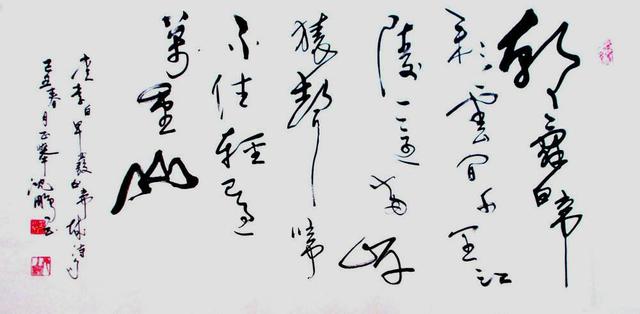 朝辭白帝
彩雲間千里江
陵一日還兩岸
猿聲啼
不住輕舟已過
萬重山
李白早發白帝城詩
己丑春月 沈鵬